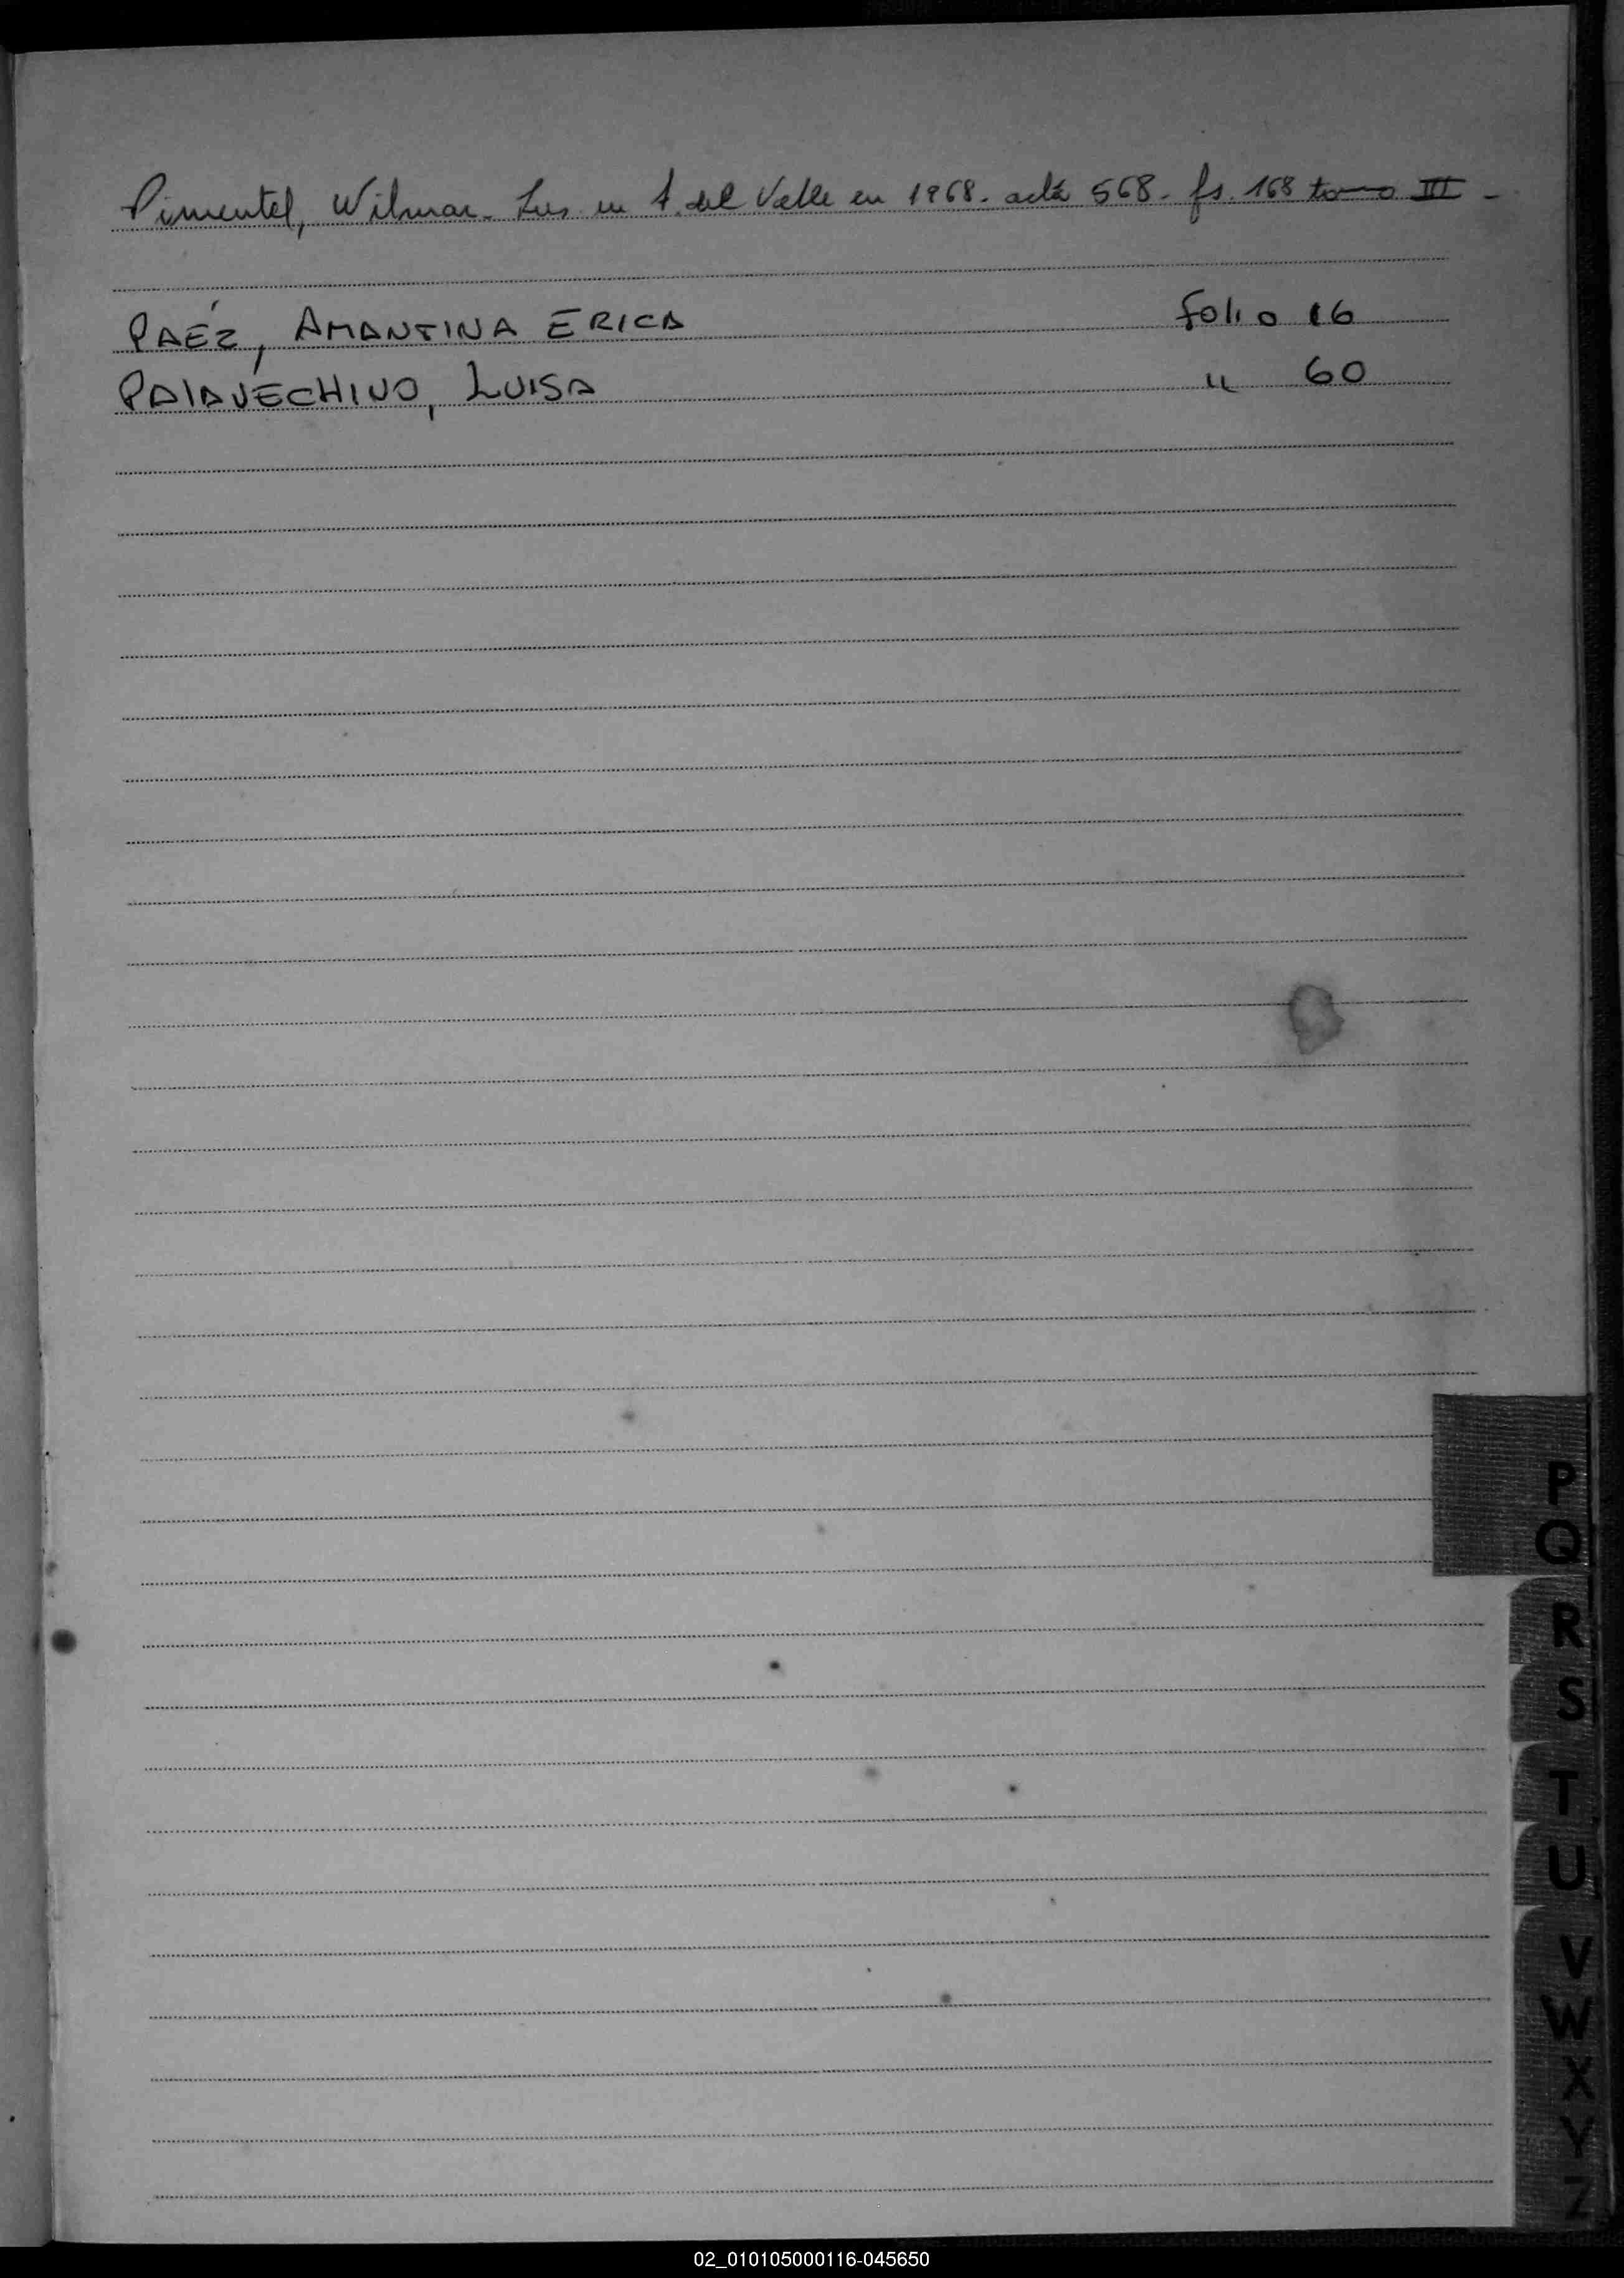 Pimentel, Wilmar. Ins. en A. del Valle en 1968. acta 568. fs. 168 tomo III -
PAÉZ, AMANTINA ERICA folio 16
PAIAVECHINO, LUISA " 60
P
Q
R
S
T
U
V
W
X
Y
Z
02_010105000116-045650